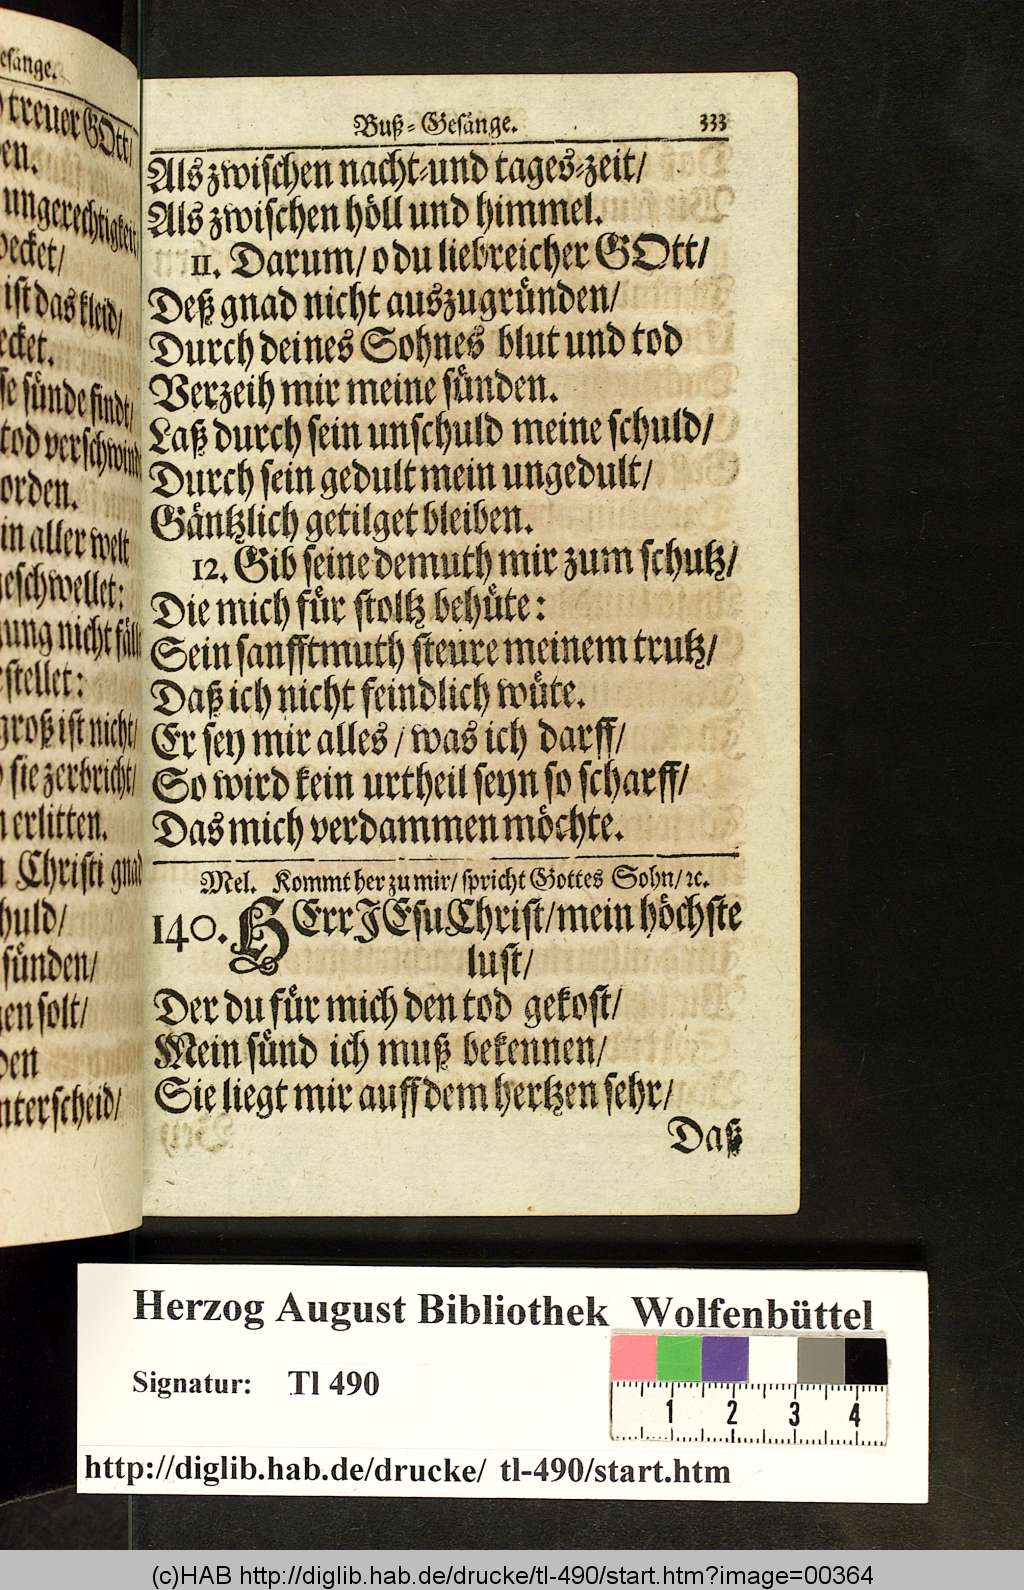 esänge.
treuer GOtt/
en.
ungerechtigkeit/
ecket/
ist das kleid/
ecket.
se sünde findt/
tod verschwind
orden.
in aller welt
geschwellet:
ung nicht fäll
estellet:
groß ist nicht/
sie zerbricht/
erlitten.
Christi gnad
huld/
sünden/
gen solt/
den
nterscheid/
Buß-Gesänge. 333
Als zwischen nacht-und tages-zeit/
Als zwischen höll und himmel.
11. Darum/ o du liebreicher GOtt/
Deß gnad nicht auszugründen/
Durch deines Sohnes blut und tod
Verzeih mir meine sünden.
Laß durch sein unschuld meine schuld/
Durch sein gedult mein ungedult/
Gäntzlich getilget bleiben.
12. Gib seine demuth mir zum schutz/
Die mich für stoltz behüte:
Sein sanfftmuth steure meinem trutz/
Daß ich nicht feindlich wüte.
Er sey mir alles/ was ich darff/
So wird kein urtheil seyn so scharff/
Das mich verdammen möchte.
Mel. Kommt her zu mir/ spricht Gottes Sohn/ ꝛc.
140. HErr JEsu Christ/ mein höchste
lust/
Der du für mich den tod gekost/
Mein sünd ich muß bekennen/
Sie liegt mir auff dem hertzen sehr/
Daß
Herzog August Bibliothek Wolfenbüttel
Signatur: Tl 490
1 2 3 4
http://diglib.hab.de/drucke/ tl-490/start.htm
(c)HAB http://diglib.hab.de/drucke/tl-490/start.htm?image=00364